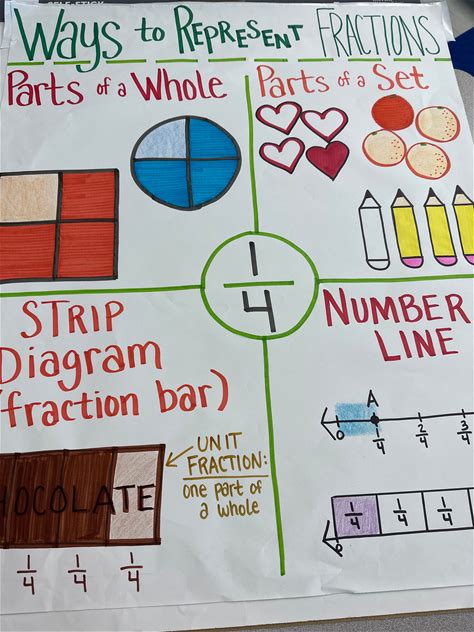 Ways to Represent Fractions
Parts of a Whole
Parts of a Set
1
4
STRIP
Diagram
(fraction bar)
UNIT
FRACTION:
one part of
a whole
CHOCOLATE
1/4 1/4 1/4
NUMBER
LINE
A
0 1/4 2/4 3/4
1/4 1/4 1/4
0